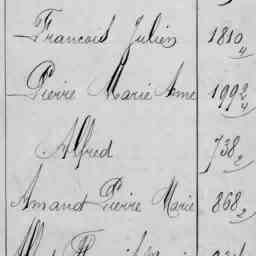 François Julien 1810 4
Pierre Marie Anne 1992 4
Alfred 738 2
Amand Pierre Marie 868 2